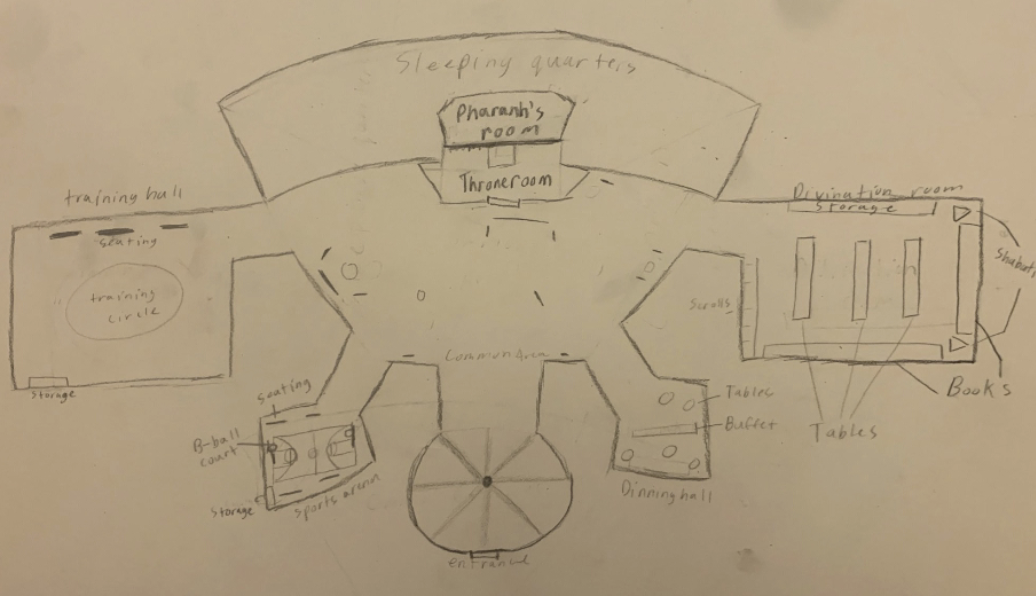 Sleeping quarters
Pharanh's
room
Throneroom
training hall
seating
training
circle
storage
Divination room
Storage
Shabuti
Scrolls
Books
Tables
Common Area
seating
B-ball
court
Storage
sports arena
Tables
Buffet
Dinning hall
entrance